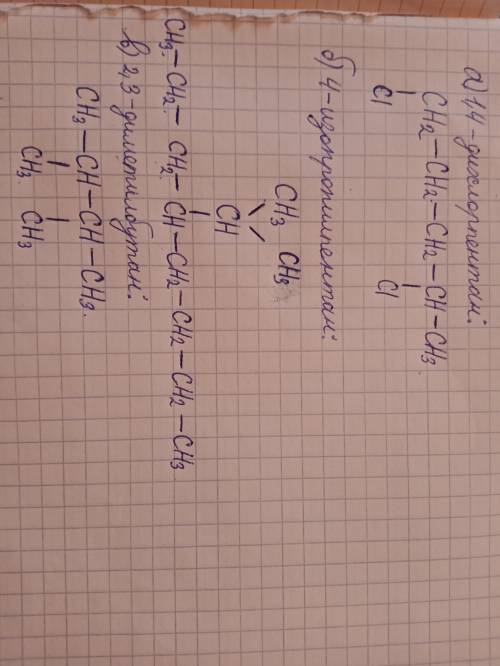 а) 1,4-дихлорпентан:
CH2—CH2—CH2—CH—CH3.
Cl Cl
б) 4-изопропилпентан:
CH3 CH3
CH
CH3—CH2—CH2—CH—CH2—CH2—CH2—CH3
в) 2,3-диметилбутан:
CH3—CH—CH—CH3.
CH3 CH3